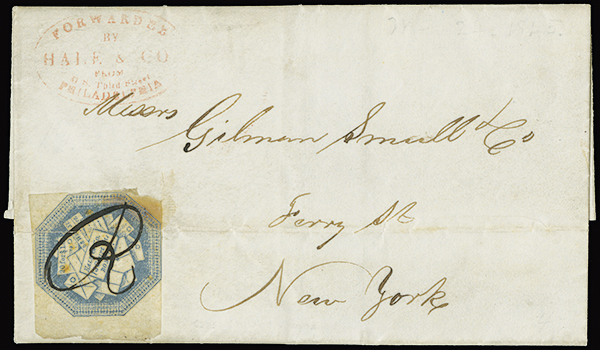 FORWARDED
BY
HALE & CO
FROM
Third Street
PHILADELPHIA
Messrs
Gilman Small & Co
Ferry St
New York